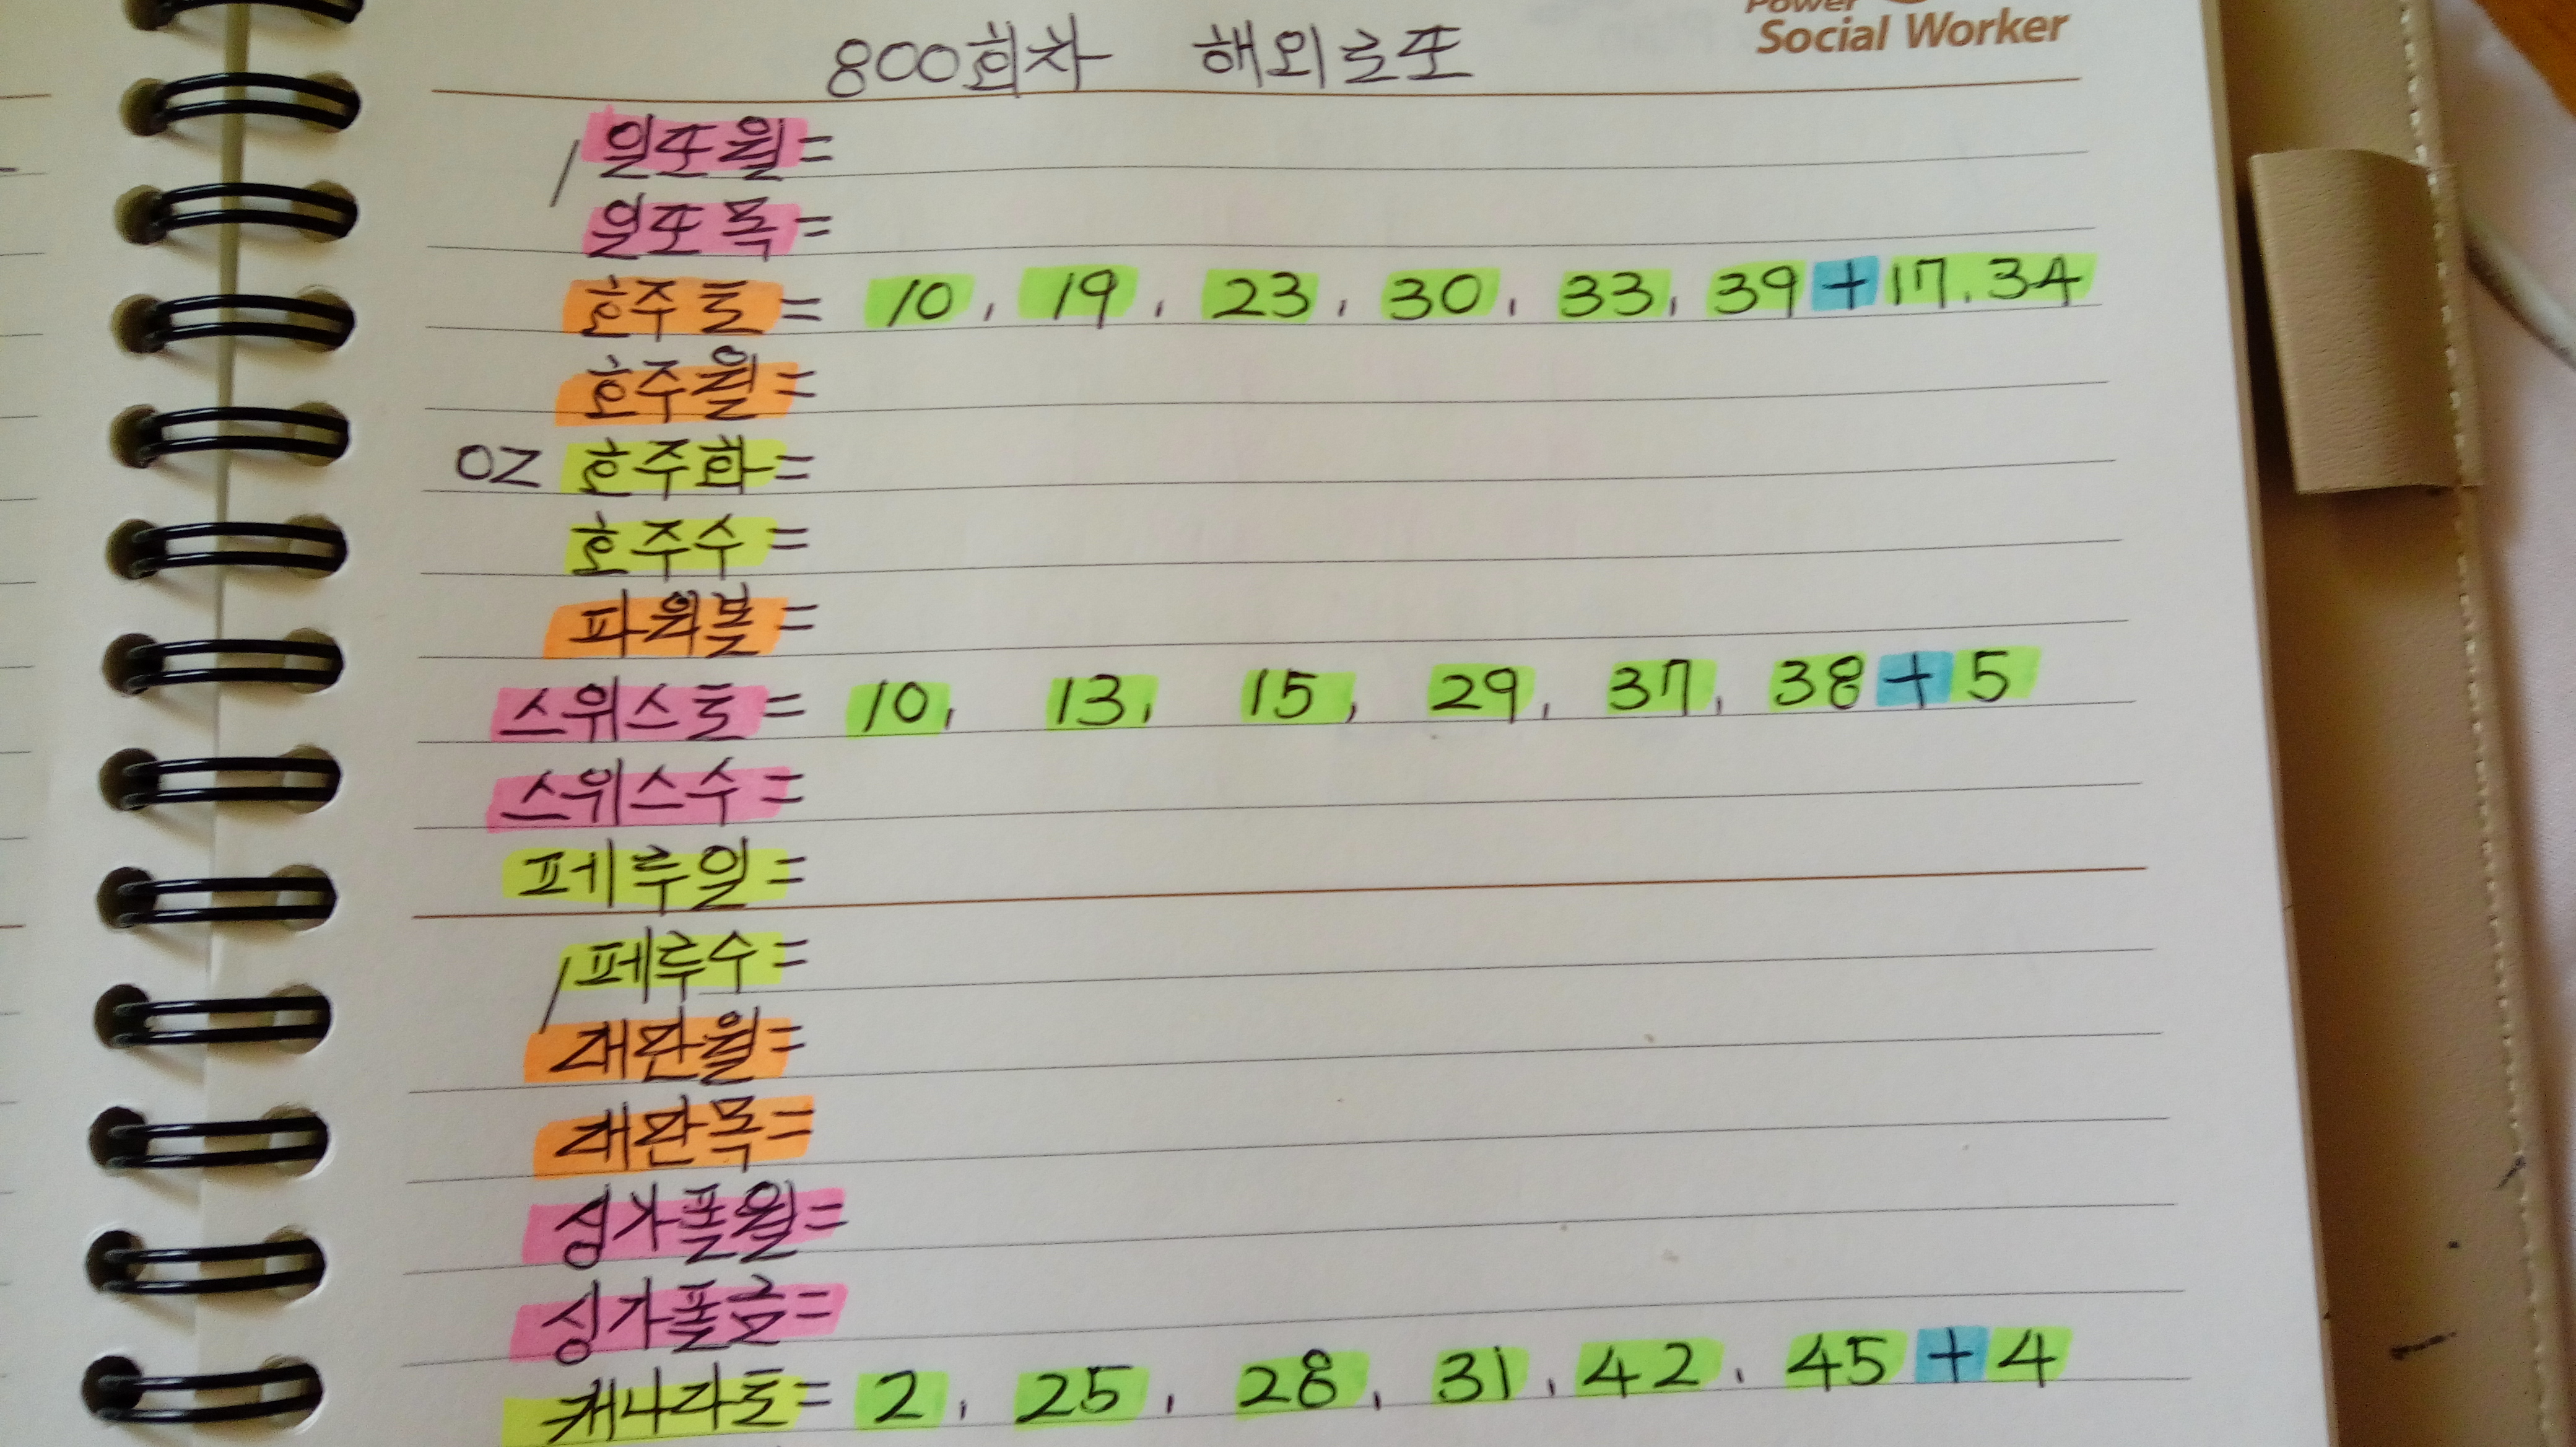 Power
Social Worker
800회차 해외로또
일본월=
일본목=
호주토= 10, 19, 23, 30, 33, 39+17.34
호주월=
OZ 호주화=
호주수=
파워볼=
스위스토= 10, 13, 15, 29, 37, 38+5
스위스수=
페루일=
페루수=
대만월=
대만목=
싱가폴월=
싱가폴금=
캐나다토= 2, 25, 28, 31, 42, 45+4